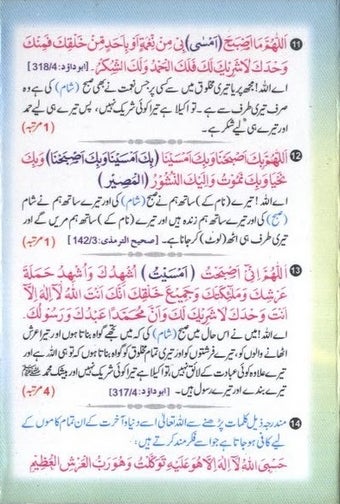 ⑪ اَللّٰهُمَّ مَا اَصْبَحَ (اَمْسٰى) بِيْ مِنْ نِّعْمَةٍ اَوْ بِاَحَدٍ مِّنْ خَلْقِكَ فَمِنْكَ
وَحْدَكَ لَا شَرِيْكَ لَكَ فَلَكَ الْحَمْدُ وَلَكَ الشُّكْرُ۔ [ابوداؤد:318/4]
اے اللہ! مجھ پر یا تیری مخلوق میں سے کسی پر جس نعمت نے بھی صبح (شام) کی ہے وہ
صرف تیری طرف سے ہے۔ تو اکیلا ہے تیرا کوئی شریک نہیں، پس تیرے ہی لیے حمد
اور تیرے ہی لیے شکر ہے۔ (1 مرتبہ)
⑫ اَللّٰهُمَّ بِكَ اَصْبَحْنَا وَبِكَ اَمْسَيْنَا (بِكَ اَمْسَيْنَا وَبِكَ اَصْبَحْنَا) وَبِكَ
نَحْيَا وَبِكَ نَمُوْتُ وَاِلَيْكَ النُّشُوْرُ (الْمَصِيْرُ)
اے اللہ! تیرے (نام کے) ساتھ ہم نے صبح (شام) کی اور تیرے ساتھ ہم نے شام
(صبح) کی اور تیرے ساتھ ہم زندہ ہیں اور تیرے (نام کے) ساتھ ہم مریں گے اور
تیری طرف ہی اٹھ (لوٹ) کر جانا ہے۔ [صحیح الترمذی:142/3] (1 مرتبہ)
⑬ اَللّٰهُمَّ اِنِّيْ اَصْبَحْتُ (اَمْسَيْتُ) اُشْهِدُكَ وَاُشْهِدُ حَمَلَةَ
عَرْشِكَ وَمَلٰٓئِكَتَكَ وَجَمِيْعَ خَلْقِكَ اَنَّكَ اَنْتَ اللّٰهُ لَا اِلٰهَ اِلَّا
اَنْتَ وَحْدَكَ لَا شَرِيْكَ لَكَ وَاَنَّ مُحَمَّدًا عَبْدُكَ وَرَسُوْلُكَ۔
اے اللہ! میں نے اس حال میں صبح (شام) کی کہ میں تجھے گواہ بناتا ہوں اور تیرا عرش
اٹھانے والوں کو، تیرے فرشتوں کو اور تیری تمام مخلوق کو گواہ بناتا ہوں کہ تو ہی اللہ ہے اور
تیرے علاوہ کوئی عبادت کے لائق نہیں، تو اکیلا ہے تیرا کوئی شریک نہیں اور بیشک محمد ﷺ
تیرے بندے اور تیرے رسول ہیں۔ [ابوداؤد:317/4] (4 مرتبہ)
⑭ مندرجہ ذیل کلمات پڑھنے سے اللہ تعالیٰ اسے دنیا و آخرت کے ان تمام کاموں کے
لیے کافی ہو جاتا ہے جو اسے فکر مند کرتے ہیں:
حَسْبِيَ اللّٰهُ لَا اِلٰهَ اِلَّا هُوَ عَلَيْهِ تَوَكَّلْتُ وَهُوَ رَبُّ الْعَرْشِ الْعَظِيْمِ